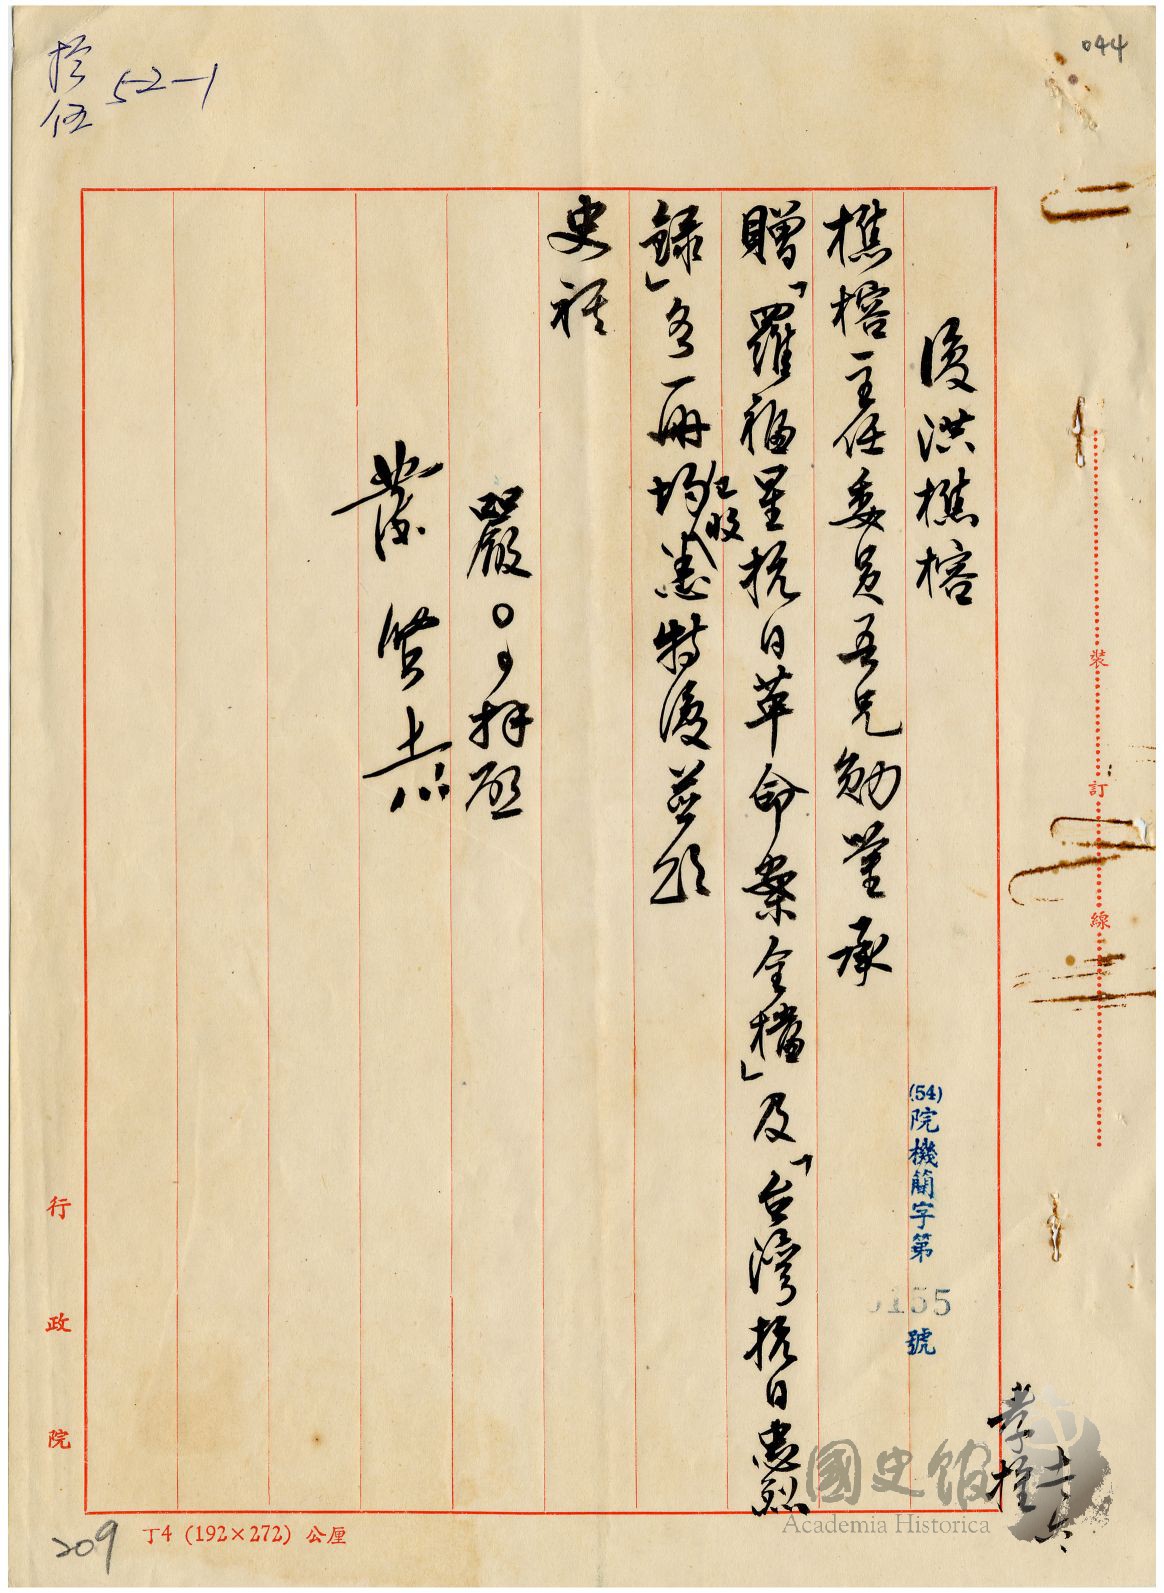 044
拾伍 52-1
復洪樵榕
樵榕主任委員吾兄勛鑒承
贈「羅福星抗日革命案全檔」及「台灣抗日忠烈
錄」各一冊均已收悉特復並頌
史祺
嚴○○拜啟
葉
(54)院機簡字第
155
號
裝訂線
行政院
209
丁4 (192×272) 公厘
國史館
Academia Historica